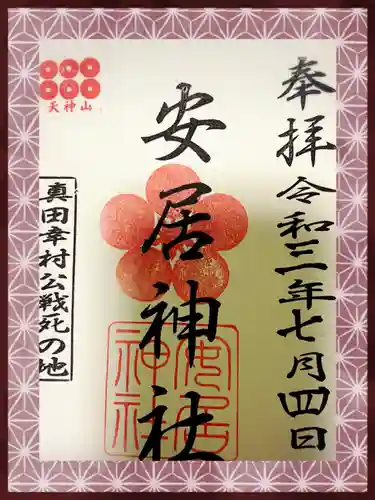 奉拝 令和三年七月四日
安居神社
天神山
真田幸村公戦死の地
安居
神社